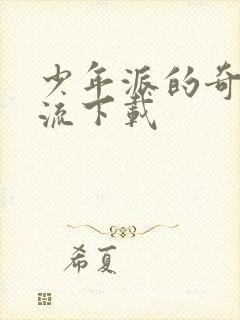 少年派的奇
流下载
希夏